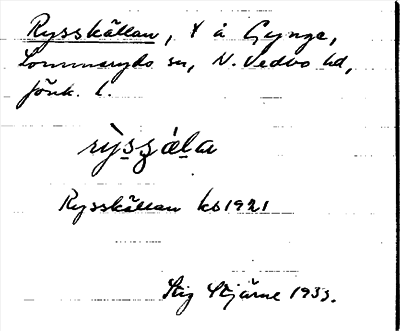 Rysskällan, t å Gynge,
Lommaryds sn, N. Vedbo hd,
Jönk. l.
rỳsʒála
Rysskällan kb 1921
Stig Stjärne 1933.